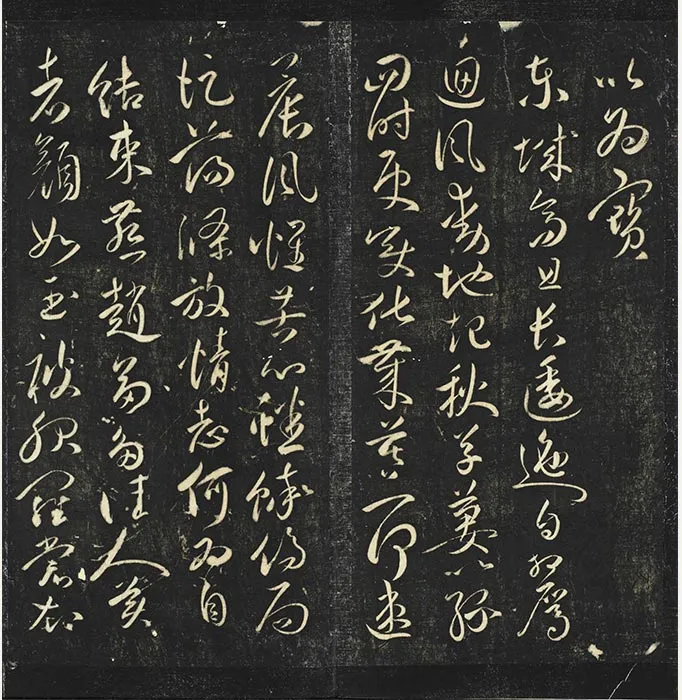 以為寶
東城高且長逶迤自相屬
迴風動地起秋草萋以綠
四時更變化歲暮一何速
晨風懷苦心蟋蟀傷局
促蕩滌放情志何為自
結束燕趙多佳人美
者顏如玉被服羅裳衣